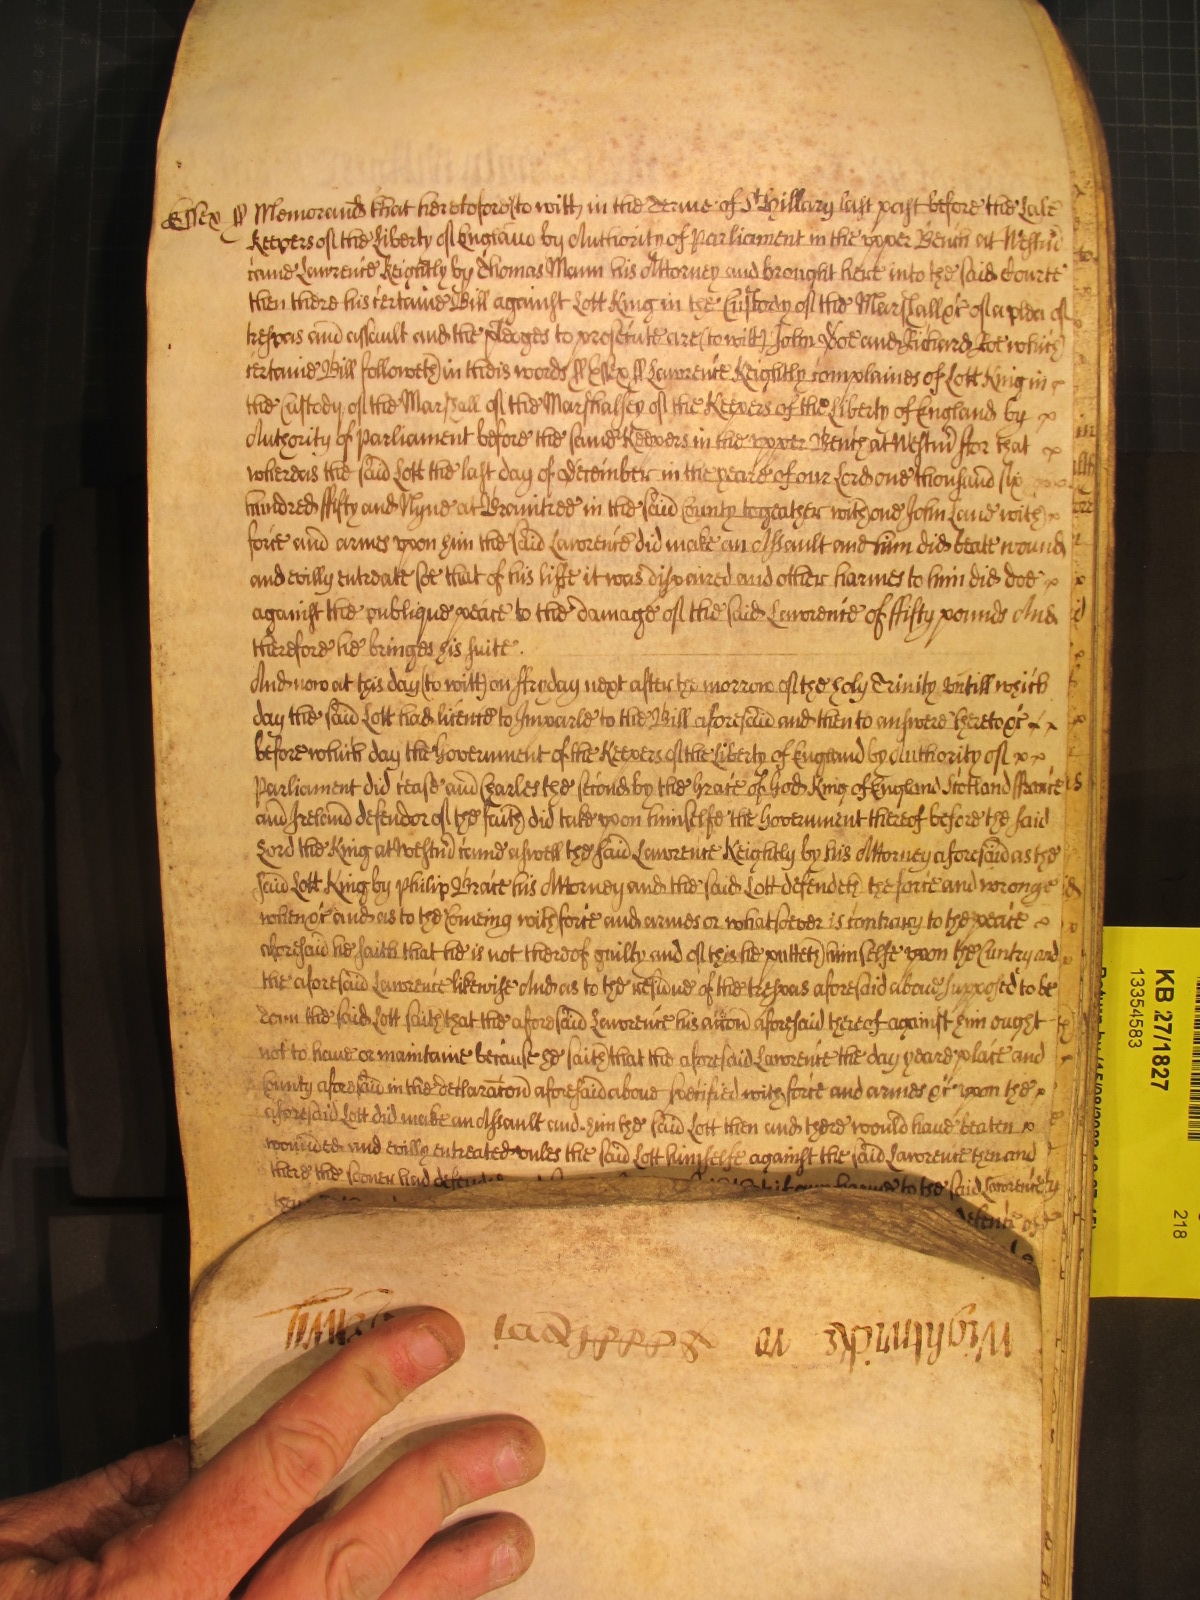 Essex ss Memorand that heretofore (to witt) in the Terme of St Hillary last past before the Late
Keepers of the Liberty of England by Authority of Parliament in the upper Bench at Westm
came Lawrence Keightly by Thomas Mann his Attorney and brought here into the said Courte
then there his certaine Bill against Lott King in the Custody of the Marshall &c of a plea of
trespas and assault and the pledges to prosecute are (to witt) John Doe and Richard Roe which
certaine Bill followeth in theis words ss Essex ss Lawrence Keightly complaines of Lott King in
the Custody of the Marshall of the Marshalsey of the Keepers of the Liberty of England by
Authority of Parliament before the same Keepers in the upper Bench at Westm ffor that
whereas the said Lott the last day of December in the yeare of our Lord one thousand six
hundred ffifty and Nyne at Braintree in the said County togeather with one John Lane with
force and armes upon him the said Lawrence did make an Assault and him did beate wound
and evilly entreate soe that of his liffe it was dispaired and other harmes to him did doe
against the publique peace to the damage of the said Lawrence of ffifty pounds And
therefore he bringes his suite .
And now at this day (to witt) on ffryday next after the morrow of the holy Trinity untill which
day the said Lott had licence to Imparle to the Bill aforesaid and then to answere hereto &c
before which day the Government of the Keepers of the Liberty of England by Authority of
Parliament did cease and Charles the second by the Grace of God King of England Scotland ffrance
and Ireland defendor of the faith did take upon himselfe the Government thereof before the said
Lord the King at Westm came aswell the said Lawrence Keightly by his Attorney aforesaid as the
said Lott King by Philip Grace his Attorney and the said Lott defendeth the force and wronge
when &c and as to the comeing with force and armes or whatsoever is contrary to the peace
aforesaid he saith that he is not thereof guilty and of this he putteth himselfe upon the Cuntry and
the aforesaid Lawrence likewise And as to the residue of the trespas aforesaid above supposed to be
don the said Lott saith that the aforesaid Lawrence his accon aforesaid thereof against him ought
not to have or maintaine because he saith that the aforesaid Lawrence the day yeare place and
County aforesaid in the declaracon aforesaid above specified with force and armes &c upon the
aforesaid Lott did make an Assault and him the said Lott then and there would have beaten
wounded and evilly entreated unles the said Lott himselfe against the said Lawrence then and
there the sooner had defended harme to the said Lawrence
defence of
Wightwicke
KB 27/1827
13354583
218